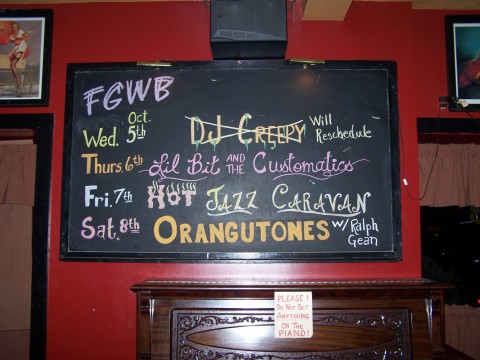 FGWB
Wed. Oct. 5th DJ Creepy Will Reschedule
Thurs. 6th Lil Bit AND THE Customatics
Fri. 7th HOT JAZZ CARAVAN
Sat. 8th ORANGUTONES w/ Ralph Gean
PLEASE!
DO NOT SET
ANYTHING
ON THE
PIANO!